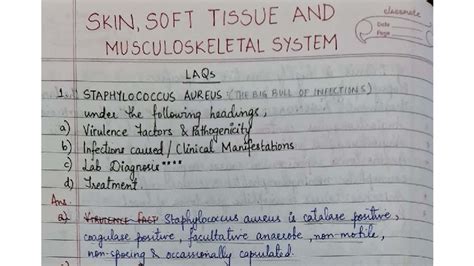 SKIN, SOFT TISSUE AND
MUSCULOSKELETAL SYSTEM
classmate
Date
Page
LAQs
1. STAPHYLOCOCCUS AUREUS (THE BIG BULL OF INFECTIONS)
under the following headings,
a) Virulence Factors & Pathogenicity
b) Infections caused / Clinical Manifestations
c) Lab Diagnosis ****
d) Treatment.
Ans.
a) Virulence Fact Staphylococcus aureus is catalase positive,
coagulase positive, facultative anaerobe, non-motile,
non-sporing & occassionally capsulated.